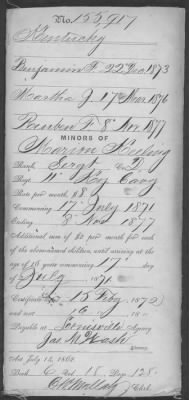 No. 155,917
Kentucky
Benjamin F. 22 Dec 1873
Martha J. 17 Mar. 1876
Reuben F. 8 Nov. 1877
MINORS OF
Marion
Rank, Sergt Co.
Reg't 11" Ky Cavy
Rate per month, $8
Commencing 17 July 1871
Ending 8 Nov 1877
Additional sum of $2 per month for each
of the abovenamed children, until arriving at the
age of 16 years commencing 17" day
of July 1871
Certificate 15 Feby 1872
and sent
Payable at Louisville Agency
Jas
Attorney
Act July 14, 1862.
Book C Vol. 18 Page 128
Clerk